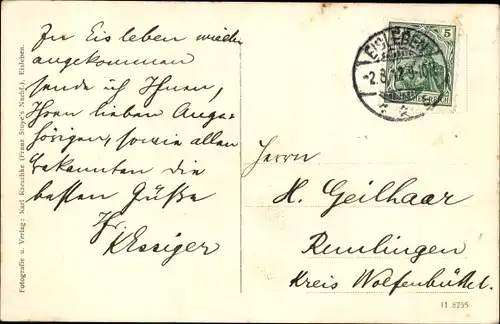 Zu Eisleben wieder
angekommen
sende ich Ihnen,
Ihren lieben Ange-
hörigen, sowie allen
Bekannten die
besten Grüße
Ihr
Herrn
H. Geilhaar
Remlingen
Kreis Wolfenbüttel.
EISLEBEN
5
Fotografie u. Verlag: Karl Rietschke (Franz Stoye's Nachf.), Eisleben.
11 8755